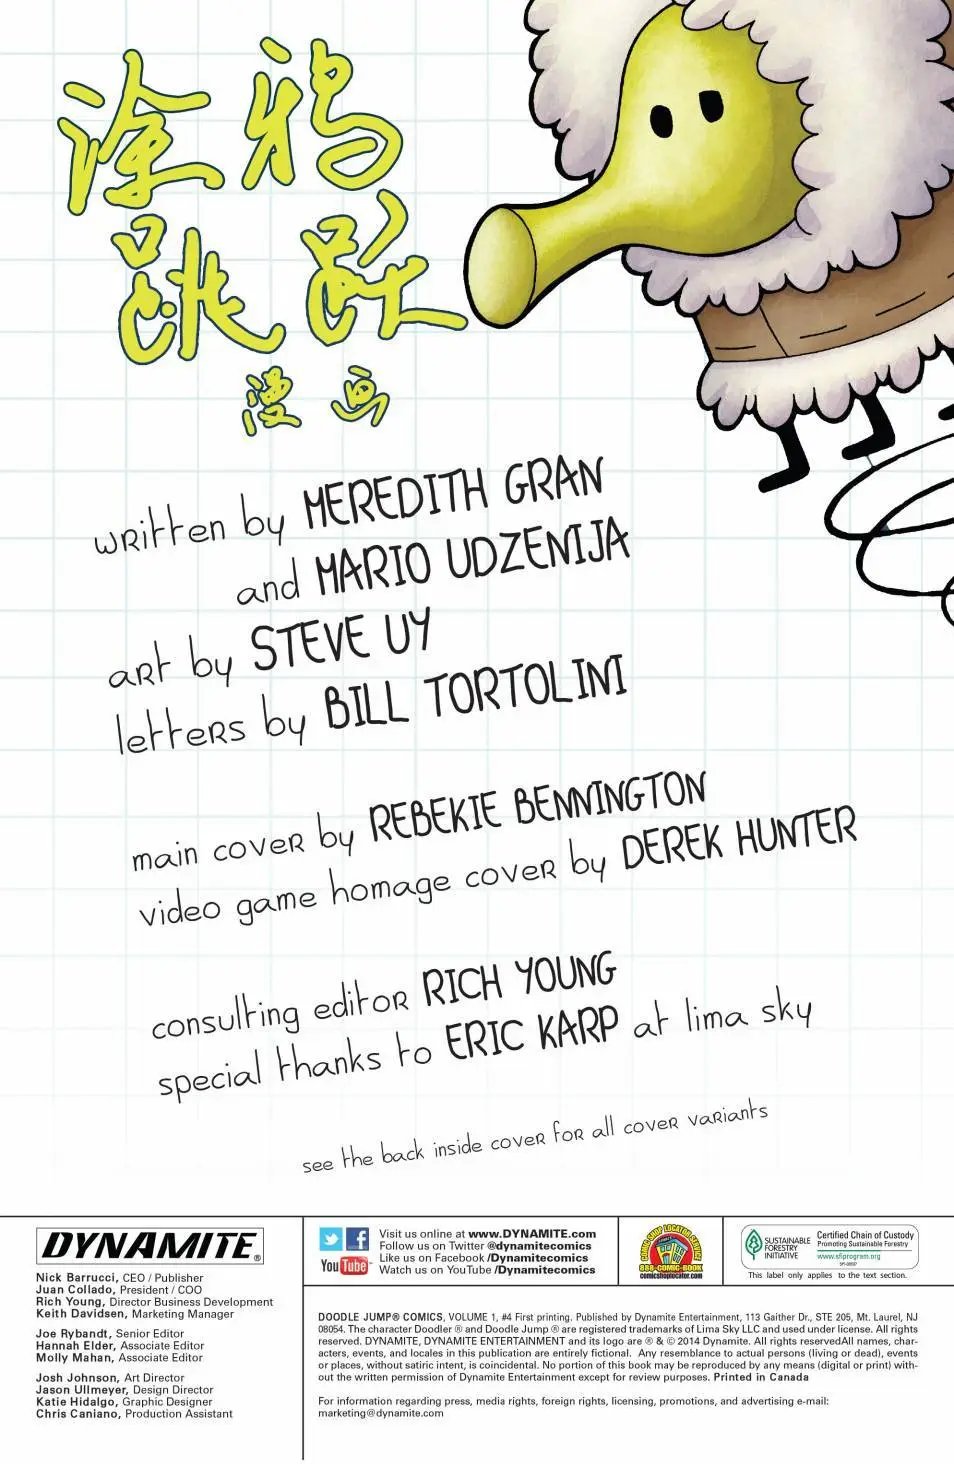 涂鸦
跳跃
漫画
written by MEREDITH GRAN
and MARIO UDZENIJA
art by STEVE UY
letters by BILL TORTOLINI
main cover by REBEKIE BENNINGTON
video game homage cover by DEREK HUNTER
consulting editor RICH YOUNG
special thanks to ERIC KARP at lima sky
see the back inside cover for all cover variants
DYNAMITE®
Nick Barrucci, CEO / Publisher
Juan Collado, President / COO
Rich Young, Director Business Development
Keith Davidsen, Marketing Manager
Joe Rybandt, Senior Editor
Hannah Elder, Associate Editor
Molly Mahan, Associate Editor
Josh Johnson, Art Director
Jason Ullmeyer, Design Director
Katie Hidalgo, Graphic Designer
Chris Caniano, Production Assistant
You Tube
Visit us online at www.DYNAMITE.com
Follow us on Twitter @dynamitecomics
Like us on Facebook /Dynamitecomics
Watch us on YouTube /Dynamitecomics
COMIC SHOP LOCATOR SERVICE
888-COMIC-BOOK
comicshoplocator.com
SUSTAINABLE
FORESTRY
INITIATIVE
Certified Chain of Custody
Promoting Sustainable Forestry
www.sfiprogram.org
This label only applies to the text section.
DOODLE JUMP® COMICS, VOLUME 1, #4 First printing. Published by Dynamite Entertainment, 113 Gaither Dr., STE 205, Mt. Laurel, NJ
08054. The character Doodler ® and Doodle Jump ® are registered trademarks of Lima Sky LLC and used under license. All rights
reserved. DYNAMITE, DYNAMITE ENTERTAINMENT and its logo are ® & © 2014 Dynamite. All rights reservedAll names, char-
acters, events, and locales in this publication are entirely fictional. Any resemblance to actual persons (living or dead), events
or places, without satiric intent, is coincidental. No portion of this book may be reproduced by any means (digital or print) with-
out the written permission of Dynamite Entertainment except for review purposes. Printed in Canada
For information regarding press, media rights, foreign rights, licensing, promotions, and advertising e-mail:
marketing@dynamite.com